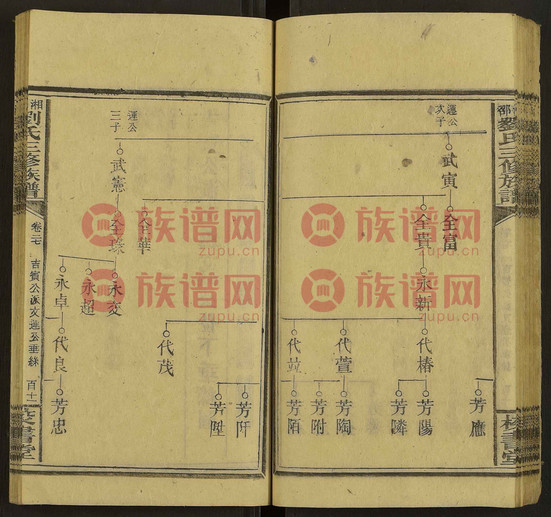 劉氏三修族譜
校書堂
運公
次子
武寅
全富
全貴
永新
代椿
代萱
代竝
芳應
芳陽
芳隣
芳陶
芳附
芳陌
湘
劉氏三修族譜
卷二七
吉賓公派文運公垂絲
百十二
校書堂
運公
三子
武憲
全華
全琮
永奕
永超
永卓
代茂
代良
芳阡
芳陞
芳忠
族谱网
zupu.cn
族谱网
zupu.cn
族谱网
zupu.cn
族谱网
zupu.cn